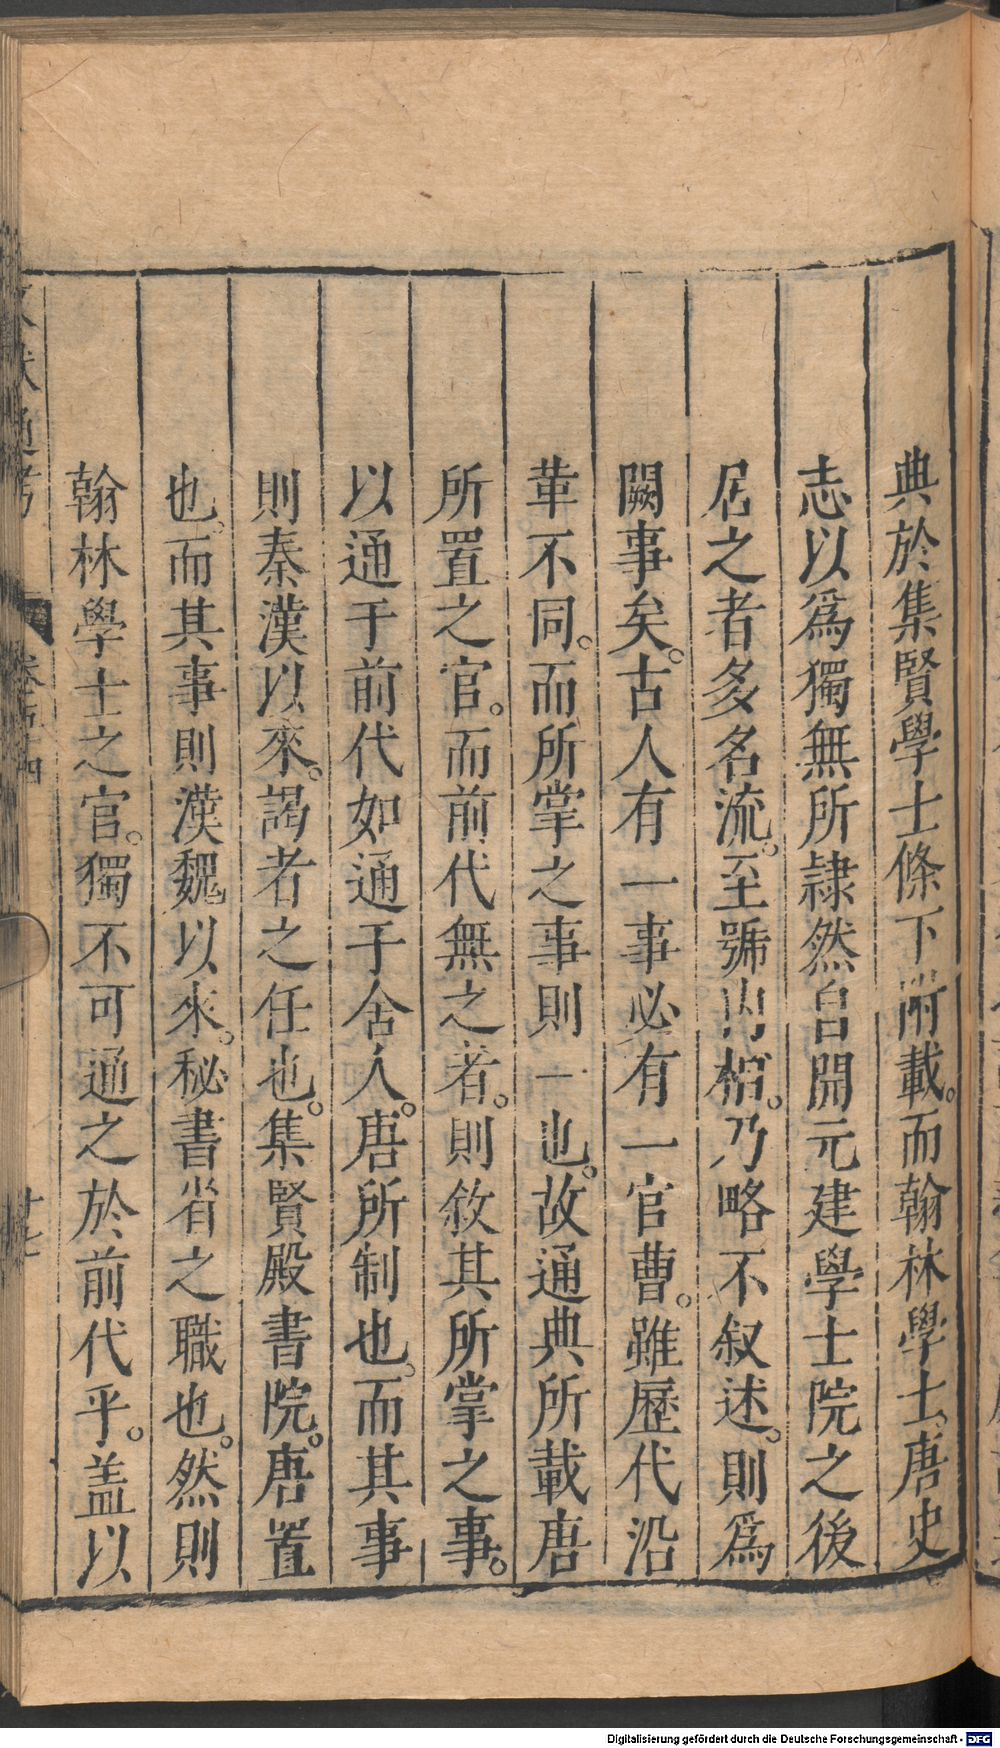 典於集賢學士條下附載。而翰林學士。唐史
志以爲獨無所隷然自開元建學士院之後
居之者多名流。至號內相。乃略不叙述。則爲
闕事矣。古人有一事必有一官曹。雖歷代沿
革不同。而所掌之事則一也。故通典所載唐
所置之官。而前代無之者。則敘其所掌之事。
以通于前代如通于舍人。唐所制也。而其事
則秦漢以來。謁者之任也。集賢殿書院。唐置
也。而其事則漢魏以來。秘書省之職也。然則
翰林學士之官。獨不可通之於前代乎。盖以
通考
卷五十四
廿七
Digitalisierung gefördert durch die Deutsche Forschungsgemeinschaft - DFG